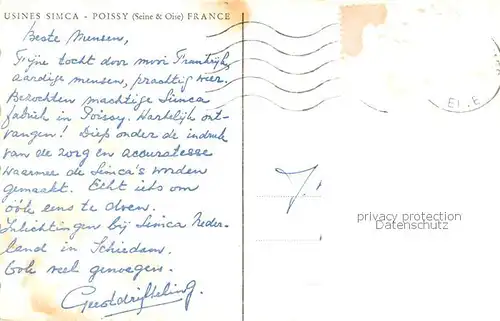 USINES SIMCA - POISSY (Seine & Oise) FRANCE
Beste Mensen,
Fijne tocht door mooi Frankrijk,
aardige mensen, prachtig weer.
Bezochten machtige Simca
fabriek in Poissy. Hartelijk ont-
vangen! Diep onder de indruk
van de zorg en accuratesse
waarmee de Simca's worden
gemaakt. Echt iets om
óók eens te doen.
Inlichtingen bij Simca Neder-
land in Schiedam.
Ook veel genoegen.
privacy protection
Datenschutz